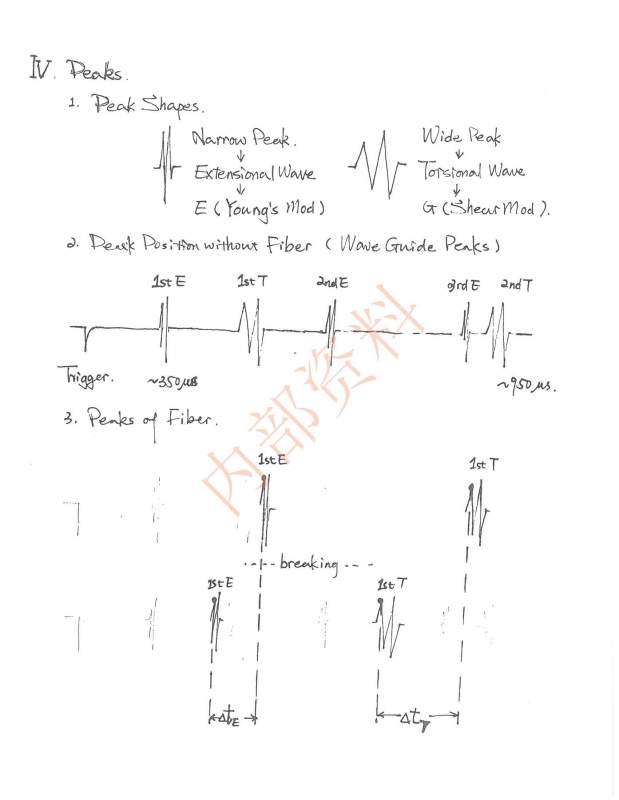 IV. Peaks.
1. Peak Shapes.
Narrow Peak.
↓
Extensional Wave
↓
E (Young's Mod)
Wide Peak
↓
Torsional Wave
↓
G (Shear Mod).
2. Peak Position without Fiber (Wave Guide Peaks)
1st E 1st T 2nd E 3rd E 2nd T
Trigger. ~350μs ~950μs.
3. Peaks of Fiber.
1st E 1st T
breaking
1st E 1st T
Δt_E Δt_T
内部资料